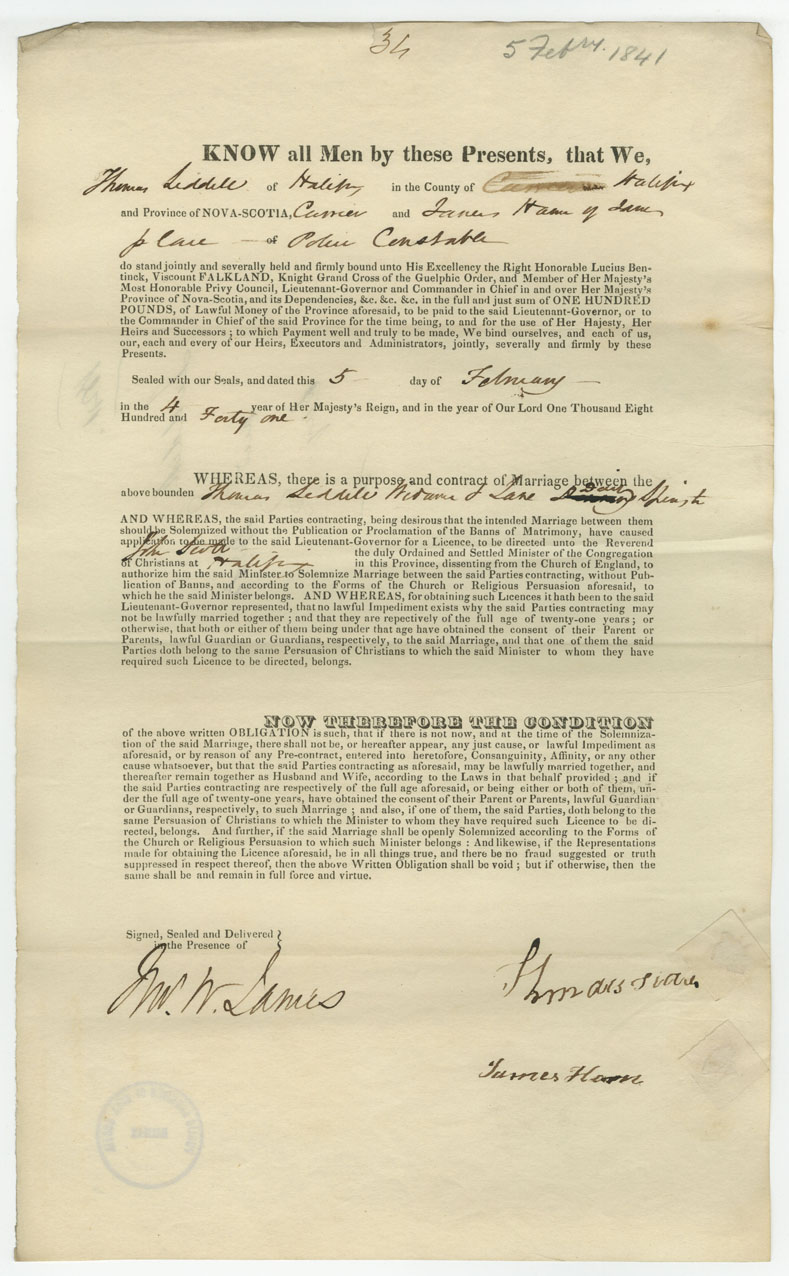 34
5 Febry. 1841
KNOW all Men by these Presents, that We,
Thomas Liddell of Halifax in the County of Halifax
and Province of NOVA-SCOTIA, Currier and James Ham of same
place — of Police Constable
do stand jointly and severally held and firmly bound unto His Excellency the Right Honorable Lucius Ben-
tinck, Viscount FALKLAND, Knight Grand Cross of the Guelphic Order, and Member of Her Majesty's
Most Honorable Privy Council, Lieutenant-Governor and Commander in Chief in and over Her Majesty's
Province of Nova-Scotia, and its Dependencies, &c. &c. &c. in the full and just sum of ONE HUNDRED
POUNDS, of Lawful Money of the Province aforesaid, to be paid to the said Lieutenant-Governor, or to
the Commander in Chief of the said Province for the time being, to and for the use of Her Hajesty, Her
Heirs and Successors ; to which Payment well and truly to be made, We bind ourselves, and each of us,
our, each and every of our Heirs, Executors and Administrators, jointly, severally and firmly by these
Presents.
Sealed with our Seals, and dated this 5 day of February —
in the 4 year of Her Majesty's Reign, and in the year of Our Lord One Thousand Eight
Hundred and Forty one.
WHEREAS, there is a purpose and contract of Marriage between the
above bounden Thomas Liddell Widower & Jane Spinster
AND WHEREAS, the said Parties contracting, being desirous that the intended Marriage between them
should be Solemnized without the Publication or Proclamation of the Banns of Matrimony, have caused
application to be made to the said Lieutenant-Governor for a Licence, to be directed unto the Reverend
John Scott the duly Ordained and Settled Minister of the Congregation
of Christians at Halifax in this Province, dissenting from the Church of England, to
authorize him the said Minister to Solemnize Marriage between the said Parties contracting, without Pub-
lication of Banns, and according to the Forms of the Church or Religious Persuasion aforesaid, to
which he the said Minister belongs. AND WHEREAS, for obtaining such Licences it hath been to the said
Lieutenant-Governor represented, that no lawful Impediment exists why the said Parties contracting may
not be lawfully married together ; and that they are repectively of the full age of twenty-one years ; or
otherwise, that both or either of them being under that age have obtained the consent of their Parent or
Parents, lawful Guardian or Guardians, respectively, to the said Marriage, and that one of them the said
Parties doth belong to the same Persuasion of Christians to which the said Minister to whom they have
required such Licence to be directed, belongs.
NOW THEREFORE THE CONDITION
of the above written OBLIGATION is such, that if there is not now, and at the time of the Solemniza-
tion of the said Marriage, there shall not be, or hereafter appear, any just cause, or lawful Impediment as
aforesaid, or by reason of any Pre-contract, entered into heretofore, Consanguinity, Affinity, or any other
cause whatsoever, but that the said Parties contracting as aforesaid, may be lawfully married together, and
thereafter remain together as Husband and Wife, according to the Laws in that behalf provided ; and if
the said Parties contracting are respectively of the full age aforesaid, or being either or both of them, un-
der the full age of twenty-one years, have obtained the consent of their Parent or Parents, lawful Guardian
or Guardians, respectively, to such Marriage ; and also, if one of them, the said Parties, doth belong to the
same Persuasion of Christians to which the Minister to whom they have required such Licence to be di-
rected, belongs. And further, if the said Marriage shall be openly Solemnized according to the Forms of
the Church or Religious Persuasion to which such Minister belongs : And likewise, if the Representations
made for obtaining the Licence aforesaid, be in all things true, and there be no fraud suggested or truth
suppressed in respect thereof, then the above Written Obligation shall be void ; but if otherwise, then the
same shall be and remain in full force and virtue.
Signed, Sealed and Delivered
in the Presence of
Jno. W. James
Thomas
James Ham